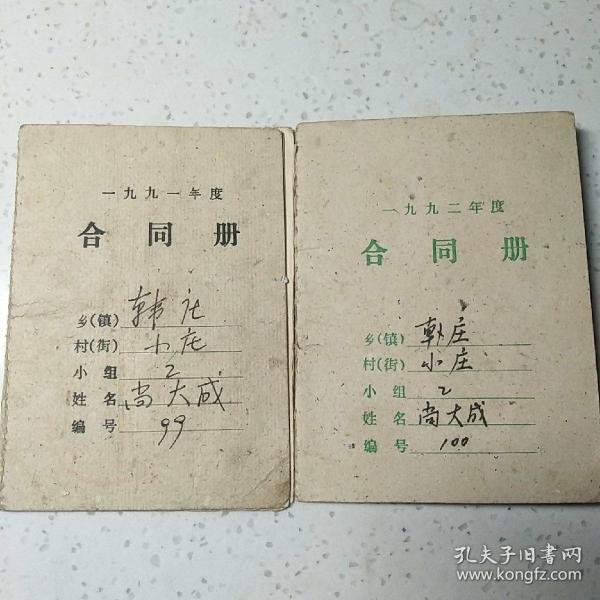 一九九一年度
合同册
乡(镇) 韩庄
村(街) 小庄
小组 2
姓名 尚大成
编号 99
一九九二年度
合同册
乡(镇) 韩庄
村(街) 小庄
小组 2
姓名 尚大成
编号 100
孔夫子旧书网
www.kongfz.com